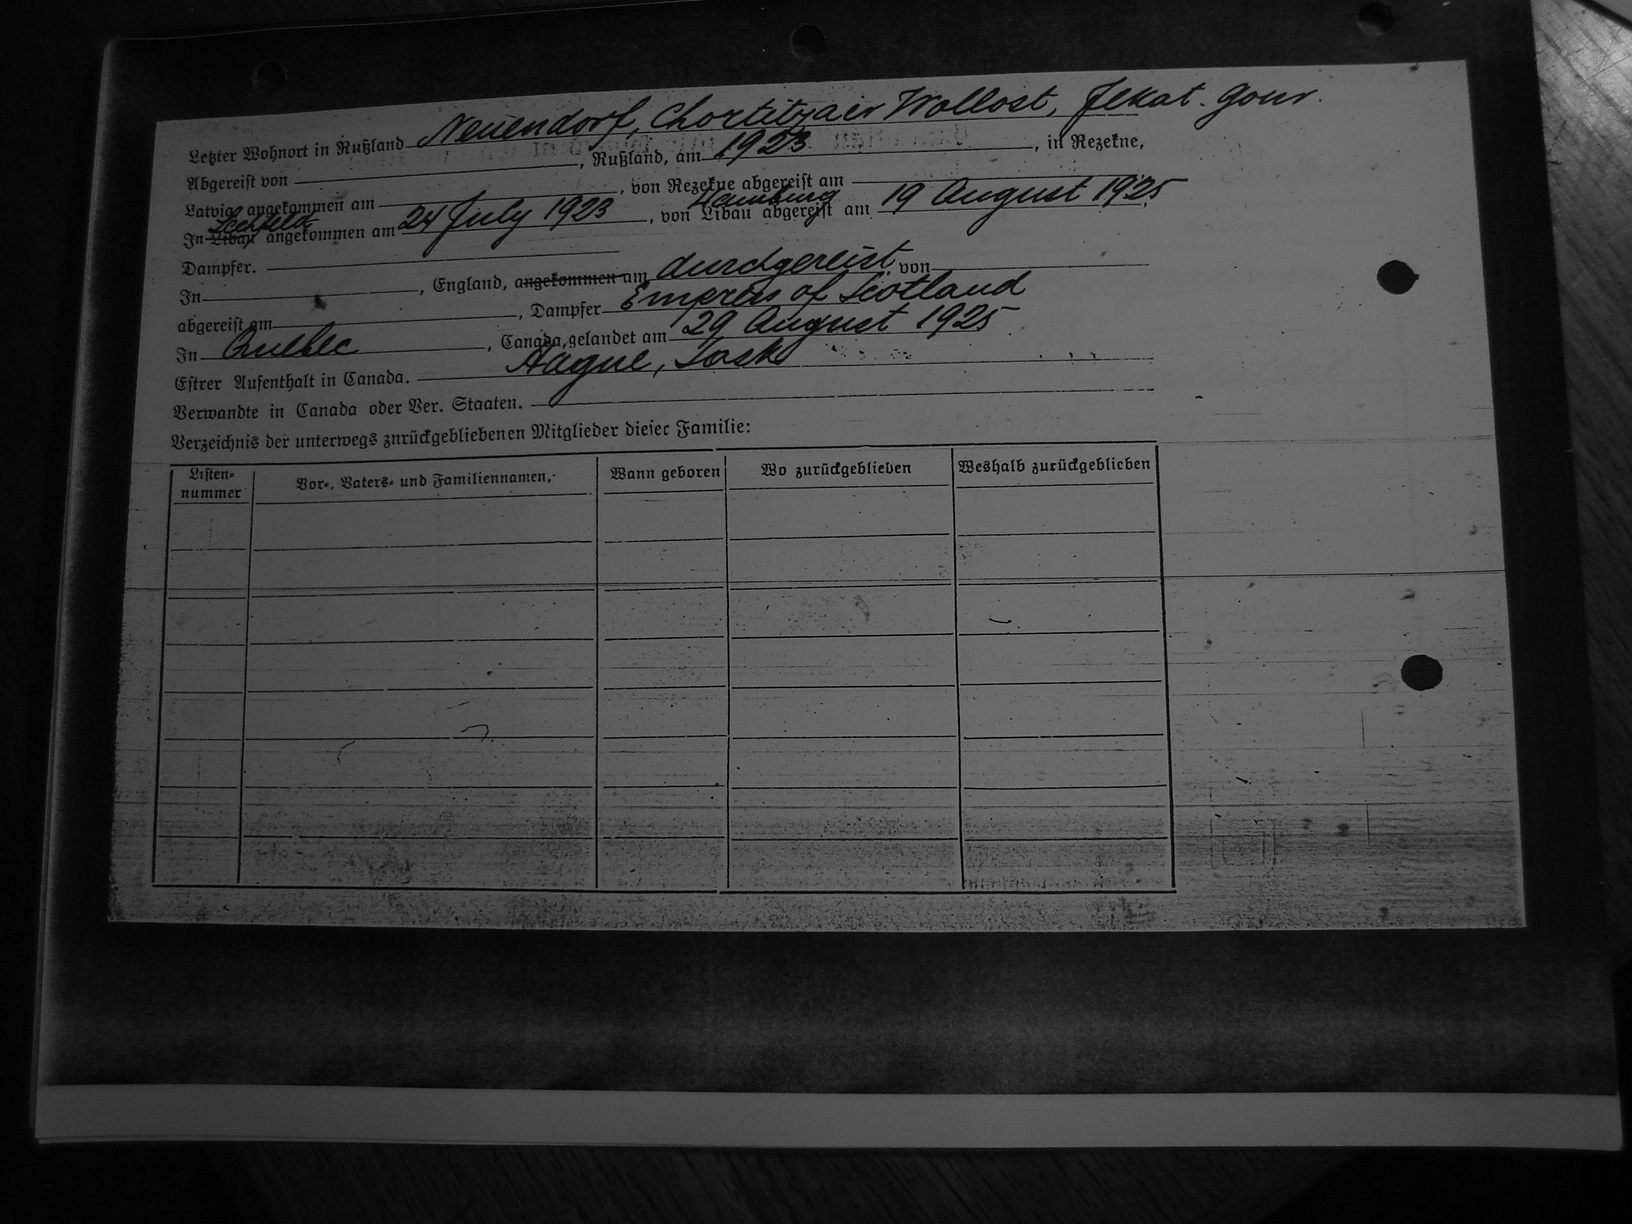 Letzter Wohnort in Rußland Neuendorf, Chortitzaer Wollost, Jekat. Gouv.
Abgereist von , Rußland, am 1923 , in Rezekne,
Latvia angekommen am , von Rezekne abgereist am
In Libau Lechfeld angekommen am 24 July 1923 , von Libau Hamburg abgereist am 19 August 1925
Dampfer.
In , England, angekommen am durchgereist, von
abgereist am , Dampfer Empress of Scotland
In Quebec , Canada, gelandet am 29 August 1925
Estrer Aufenthalt in Canada. Hague, Sask
Verwandte in Canada oder Ver. Staaten.
Verzeichnis der unterwegs znrückgebliebenen Mitglieder dieser Familie:
Listen-nummer Vor-, Vaters- und Familiennamen, Wann geboren Wo zurückgeblieben Weshalb zurückgeblieben